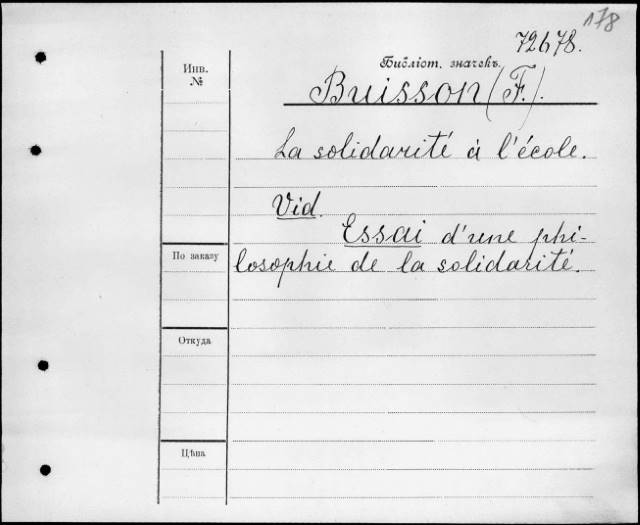 178
72678.
Библіот. значекъ.
Инв.
№
Buisson (F.).
La solidarité à l'école.
Vid.
Essai d'une phi-
losophie de la solidarité.
По заказу
Откуда
Цѣна